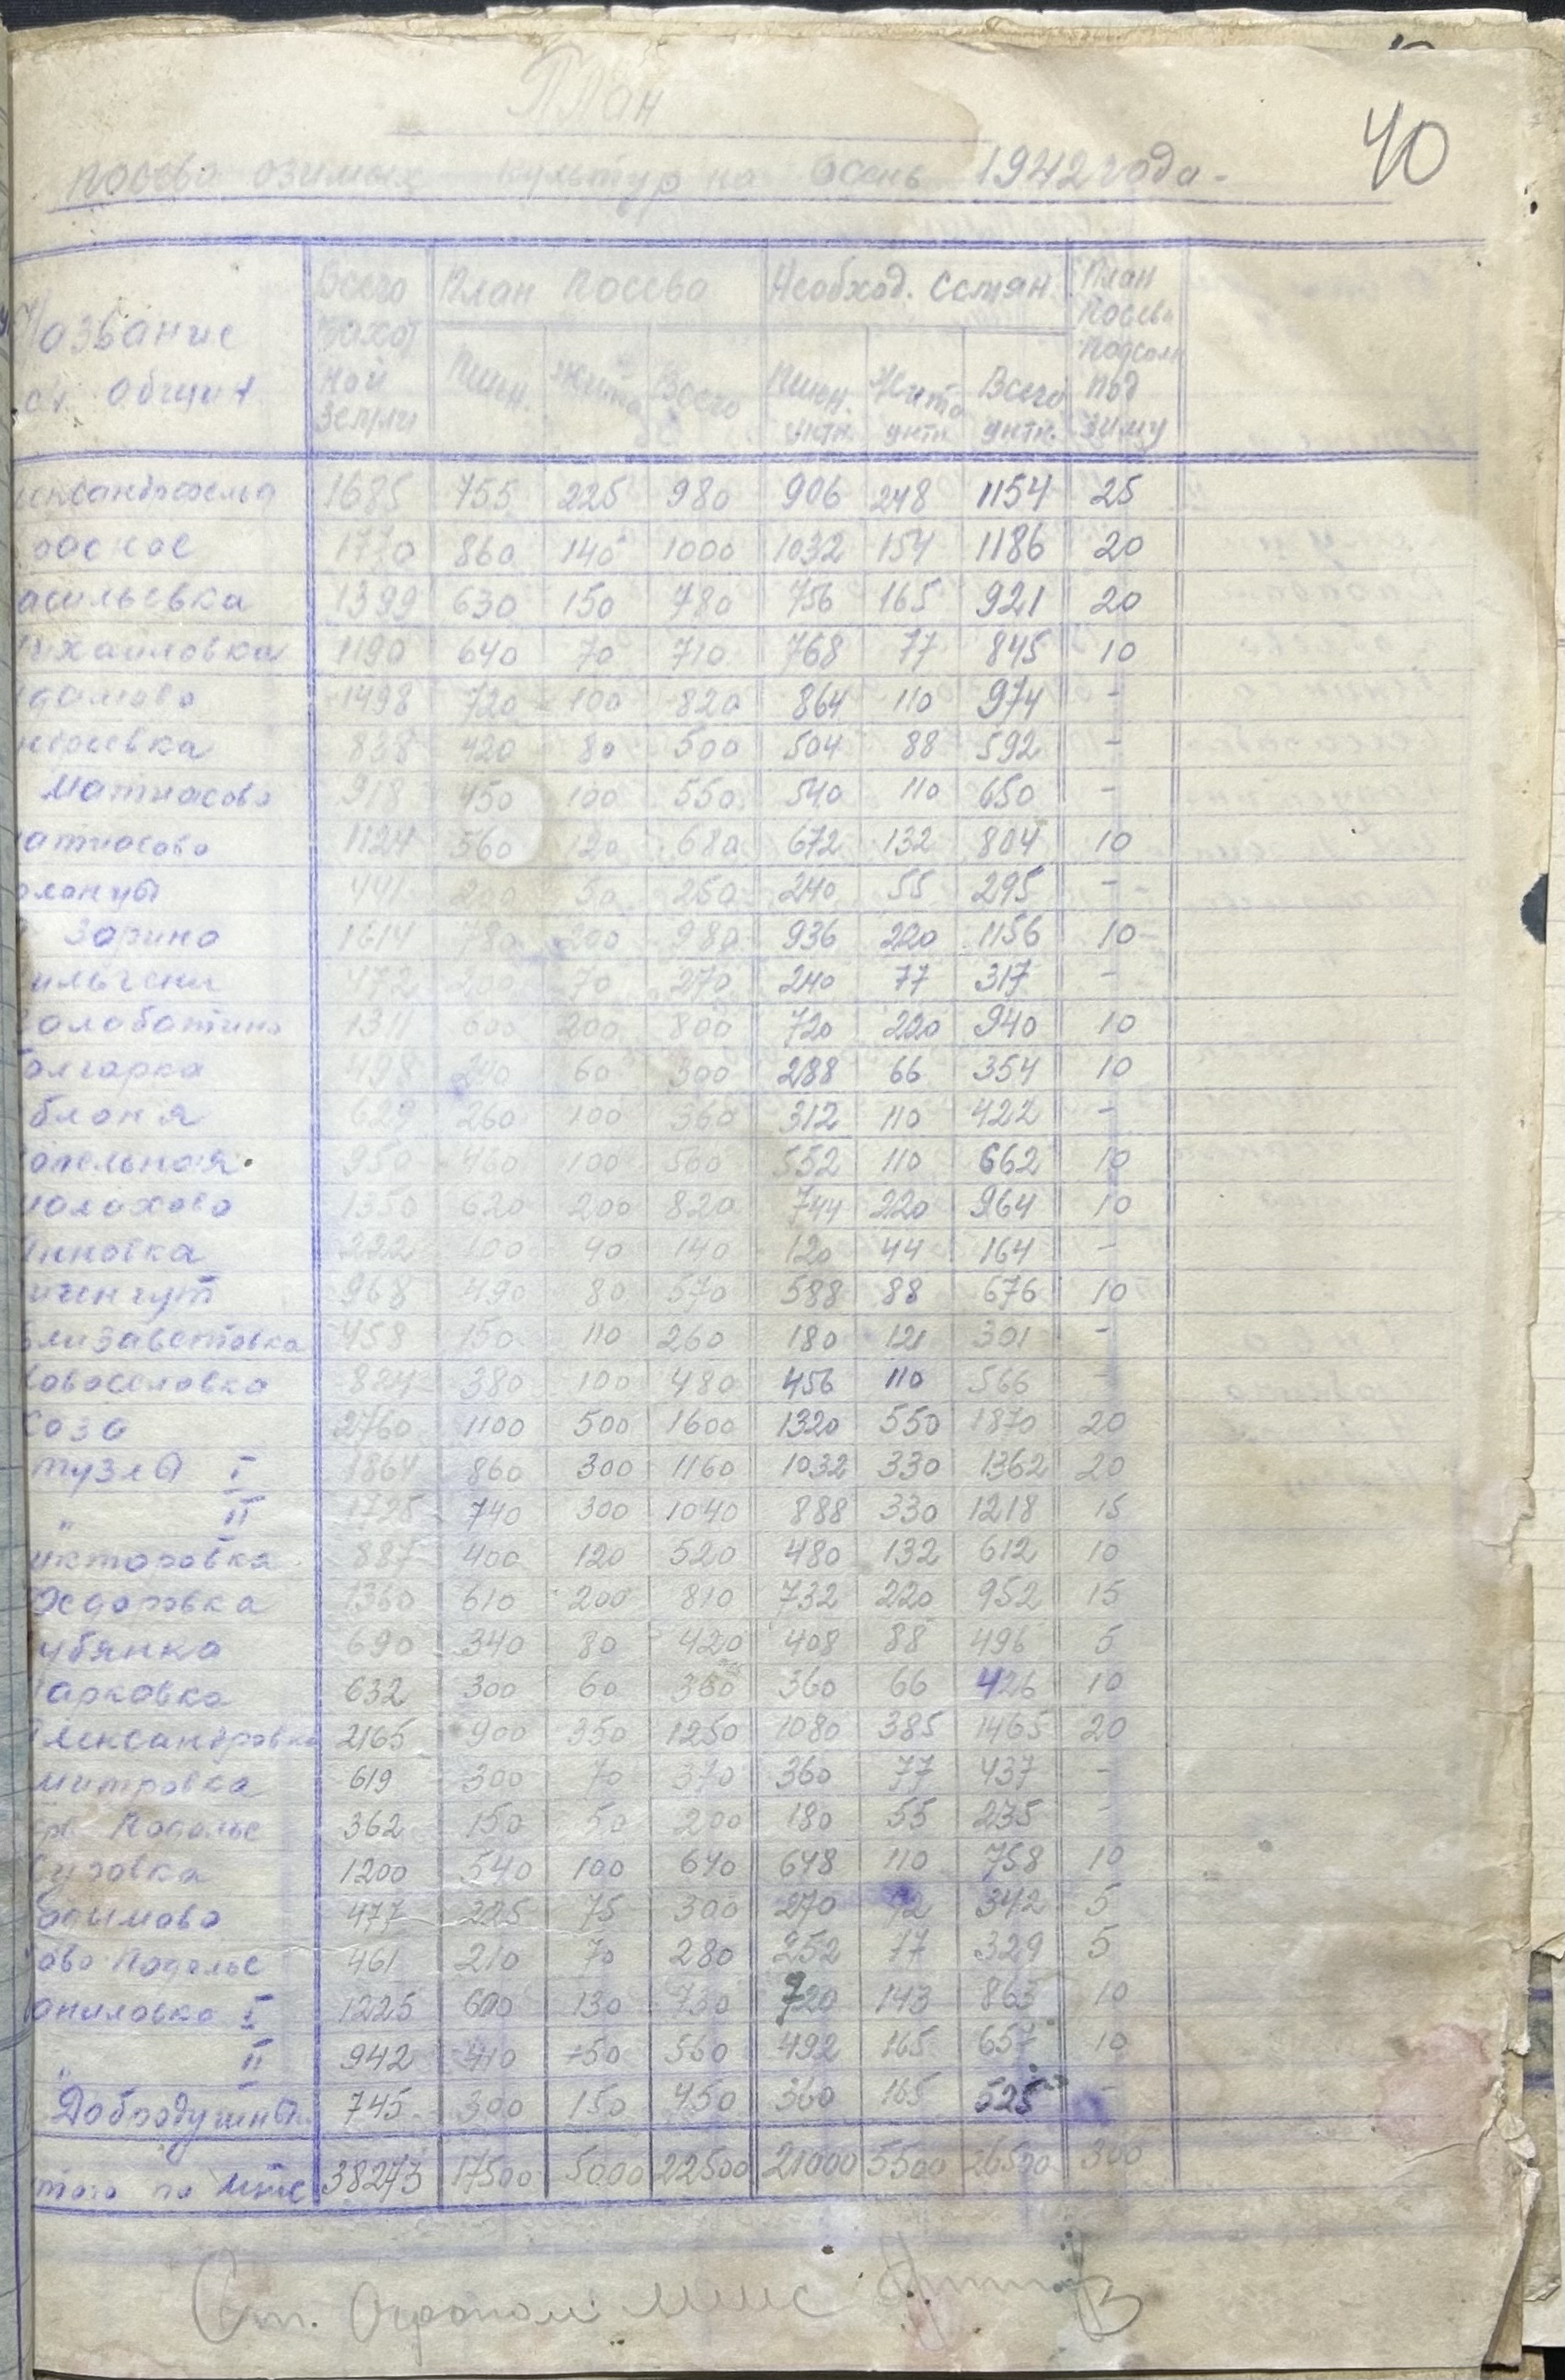 40
План
посева озимых культур на осень 1942 года.
Название общин | Всего пахотной земли | План посева | Необход. семян | План посева подсолн. под зиму
Пшен. | Жита | Всего | Пшен. цнтн. | Жита цнтн. | Всего цнтн.
лександрофельд 1685 755 225 980 906 248 1154 25
расное 1770 860 140 1000 1032 154 1186 20
асильевка 1399 630 150 780 756 165 921 20
ихайловка 1190 640 70 710 768 77 845 10
дамово 1498 720 100 820 864 110 974 -
ндреевка 838 420 80 500 504 88 592 -
Матиасово 918 450 100 550 540 110 650 -
атиасово 1124 560 120 680 672 132 804 10
441 200 50 250 240 55 295 -
Зарино 1614 780 200 980 936 220 1156 10
472 200 70 270 240 77 317 -
алабатино 1311 600 200 800 720 220 940 10
олгарка 498 240 60 300 288 66 354 10
блоня 629 260 100 360 312 110 422 -
опельная 950 460 100 560 552 110 662 10
малахово 1350 620 200 820 744 220 964 10
Анновка 222 100 40 140 120 44 164 -
968 490 80 570 588 88 676 10
лизаветовка 458 150 110 260 180 121 301 -
Новоселовка 824 380 100 480 456 110 566 -
2760 1100 500 1600 1320 550 1870 20
тузлы I 1864 860 300 1160 1032 330 1362 20
" II 1725 740 300 1040 888 330 1218 15
икторовка 887 400 120 520 480 132 612 10
1360 610 200 810 732 220 952 15
убянка 690 340 80 420 408 88 496 5
арковка 632 300 60 360 360 66 426 10
Александровка 2165 900 350 1250 1080 385 1465 20
митровка 619 300 70 370 360 77 437 -
Подольс 362 150 50 200 180 55 235 -
1200 540 100 640 648 110 758 10
477 225 75 300 270 342 5
ово Подольс 461 210 70 280 252 77 329 5
аниловка I 1225 600 130 730 720 143 863 10
" II 942 410 150 560 492 165 657 10
Добродушны 745 300 150 450 360 165 525 -
того по мтс 38273 17500 5000 22500 21000 5500 26500 300
Ст. Агроном мтс